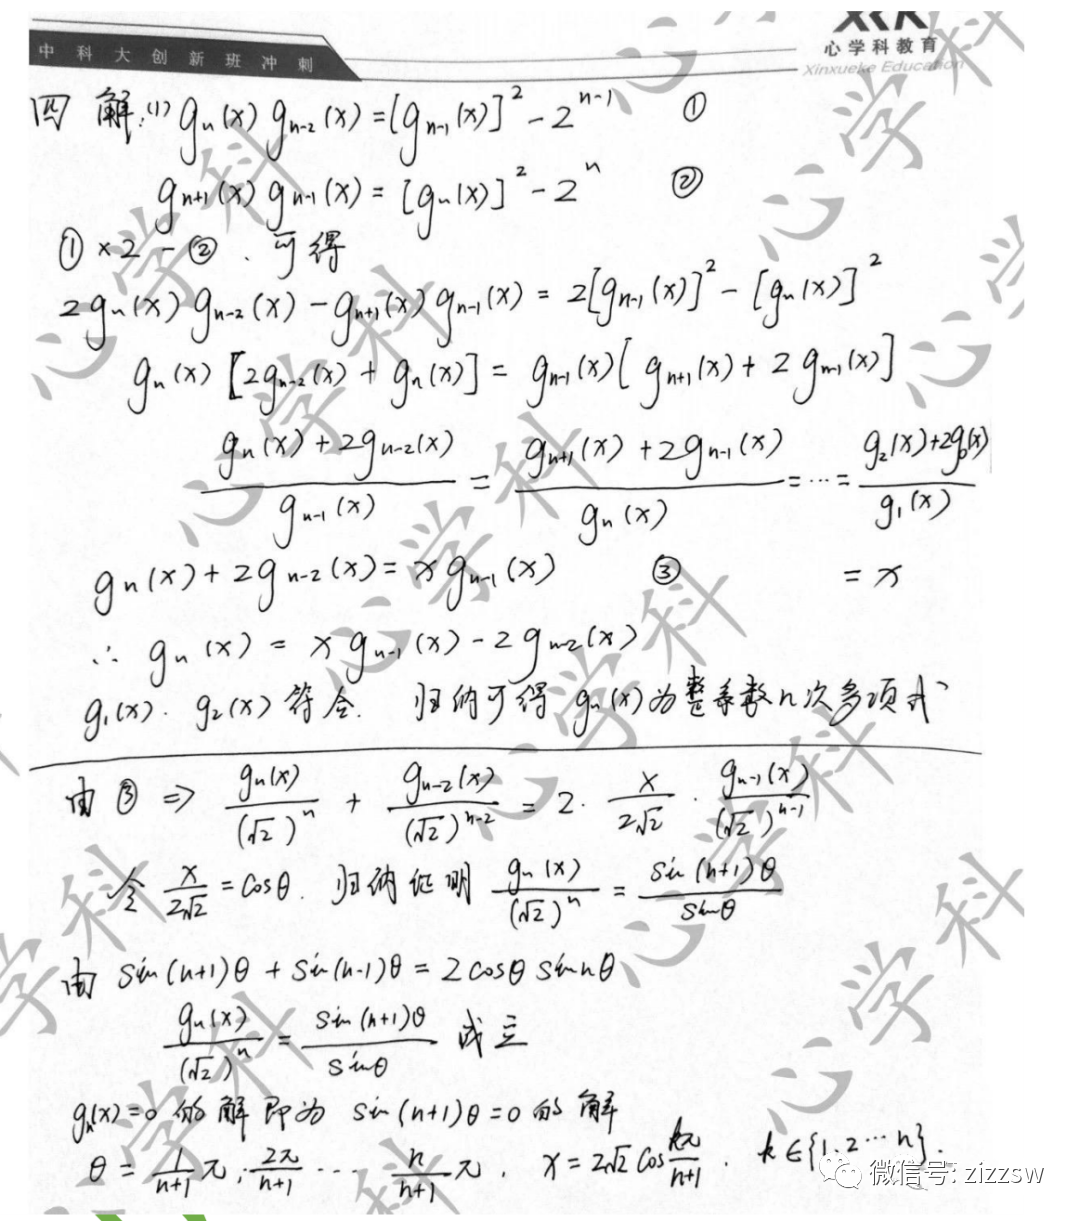 中科大创新班冲刺
心学科教育
Xinxueke Education
四 解:(1) gₙ(x) gₙ₋₂(x) = [gₙ₋₁(x)]² - 2ⁿ⁻¹ ①
gₙ₊₁(x) gₙ₋₁(x) = [gₙ(x)]² - 2ⁿ ②
① × 2 - ②. 可得
2gₙ(x) gₙ₋₂(x) - gₙ₊₁(x) gₙ₋₁(x) = 2[gₙ₋₁(x)]² - [gₙ(x)]²
gₙ(x) [2gₙ₋₂(x) + gₙ(x)] = gₙ₋₁(x) [gₙ₊₁(x) + 2gₙ₋₁(x)]
(gₙ(x) + 2gₙ₋₂(x)) / gₙ₋₁(x) = (gₙ₊₁(x) + 2gₙ₋₁(x)) / gₙ(x) = ⋯ = (g₂(x) + 2g₀(x)) / g₁(x)
gₙ(x) + 2gₙ₋₂(x) = x gₙ₋₁(x) ③ = x
∴ gₙ(x) = x gₙ₋₁(x) - 2gₙ₋₂(x)
g₁(x). g₂(x) 符合. 归纳可得 gₙ(x) 为整系数n次多项式
由 ③ ⇒ gₙ(x) / (√2)ⁿ + gₙ₋₂(x) / (√2)ⁿ⁻² = 2 · x / 2√2 · gₙ₋₁(x) / (√2)ⁿ⁻¹
令 x / 2√2 = cosθ. 归纳证明 gₙ(x) / (√2)ⁿ = sin(n+1)θ / sinθ
由 sin(n+1)θ + sin(n-1)θ = 2cosθ sin nθ
gₙ(x) / (√2)ⁿ = sin(n+1)θ / sinθ 成立
gₙ(x)=0 的解即为 sin(n+1)θ=0 的解
θ = 1/(n+1) π, 2π/(n+1) ⋯ n/(n+1) π. x = 2√2 cos kπ/(n+1). k∈{1,2⋯n}.
微信号: zizzsw